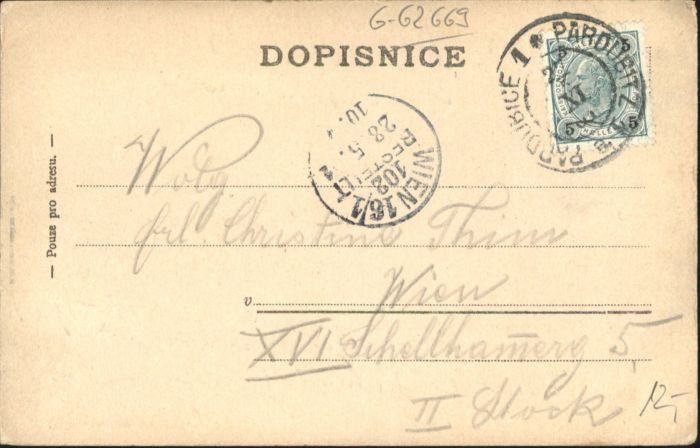 G-62669
DOPISNICE
PARDUBITZ
PARDUBICE 1
5 HELLER 5
WIEN 16/1
BESTELLT
102
28. 5.
10.
— Pouze pro adresu. —
Wolg
Frl. Christine Thim
v Wien
XVI Schellhammerg 5,
II Stock
12,-